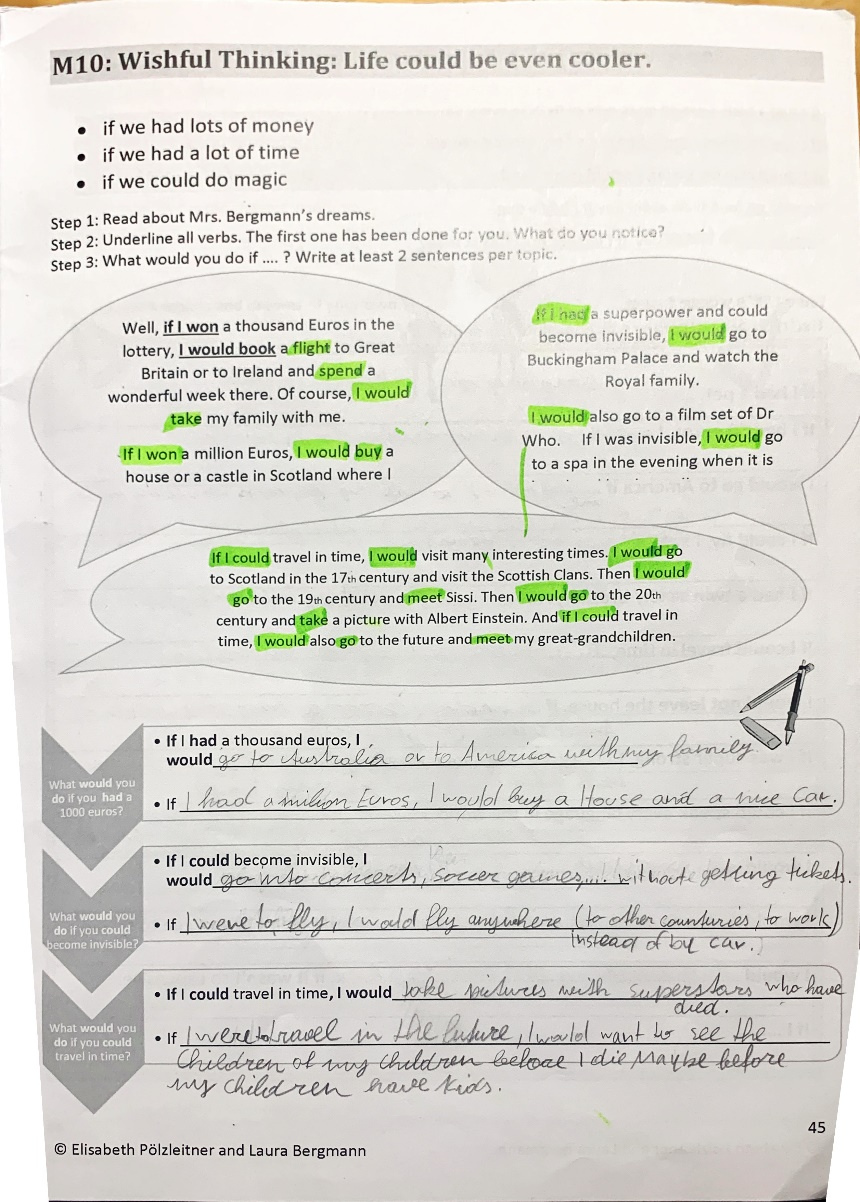 M10: Wishful Thinking: Life could be even cooler.
• if we had lots of money
• if we had a lot of time
• if we could do magic
Step 1: Read about Mrs. Bergmann's dreams.
Step 2: Underline all verbs. The first one has been done for you. What do you notice?
Step 3: What would you do if .... ? Write at least 2 sentences per topic.
Well, if I won a thousand Euros in the
lottery, I would book a flight to Great
Britain or to Ireland and spend a
wonderful week there. Of course, I would
take my family with me.
If I won a million Euros, I would buy a
house or a castle in Scotland where I
If I had a superpower and could
become invisible, I would go to
Buckingham Palace and watch the
Royal family.
I would also go to a film set of Dr
Who. If I was invisible, I would go
to a spa in the evening when it is
If I could travel in time, I would visit many interesting times. I would go
to Scotland in the 17th century and visit the Scottish Clans. Then I would
go to the 19th century and meet Sissi. Then I would go to the 20th
century and take a picture with Albert Einstein. And if I could travel in
time, I would also go to the future and meet my great-grandchildren.
What would you
do if you had a
1000 euros?
• If I had a thousand euros, I
would go to Australia or to America with my family.
• If I had a milion Euros, I would buy a House and a nice Car.
What would you
do if you could
become invisible?
• If I could become invisible, I
would go into concerts, soccer games,... without getting tickets.
• If I were to fly, I would fly anywhere (to other counturies, to work)
instead of by car.
What would you
do if you could
travel in time?
• If I could travel in time, I would take pictures with superstars who have
died.
• If I were to travel in the future, I would want to see the
Children of my children before I die Maybe before
my children have kids.
45
© Elisabeth Pölzleitner and Laura Bergmann